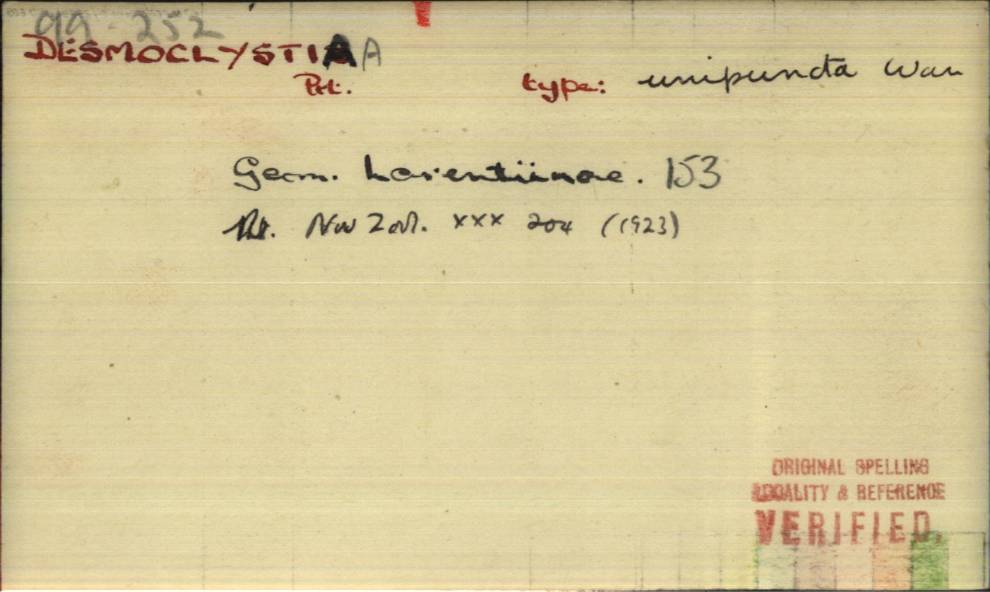 99-252
DESMOCLYSTIA A
Prt. type: unipuncta War
Geom. Larentiinae. 153
Prt. Nov Zool. xxx 204 (1923)
ORIGINAL SPELLING
LOCALITY & REFERENCE
VERIFIED.